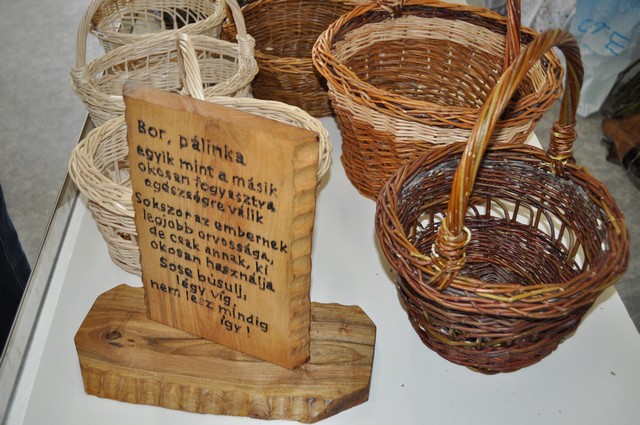 Bor, pálinka
egyik mint a másik
okosan fogyasztva
egészségre válik
Sokszor az embernek
legjobb orvossága,
de csak annak, ki
okosan használja
Sose búsulj,
légy víg,
nem lesz mindig
így!